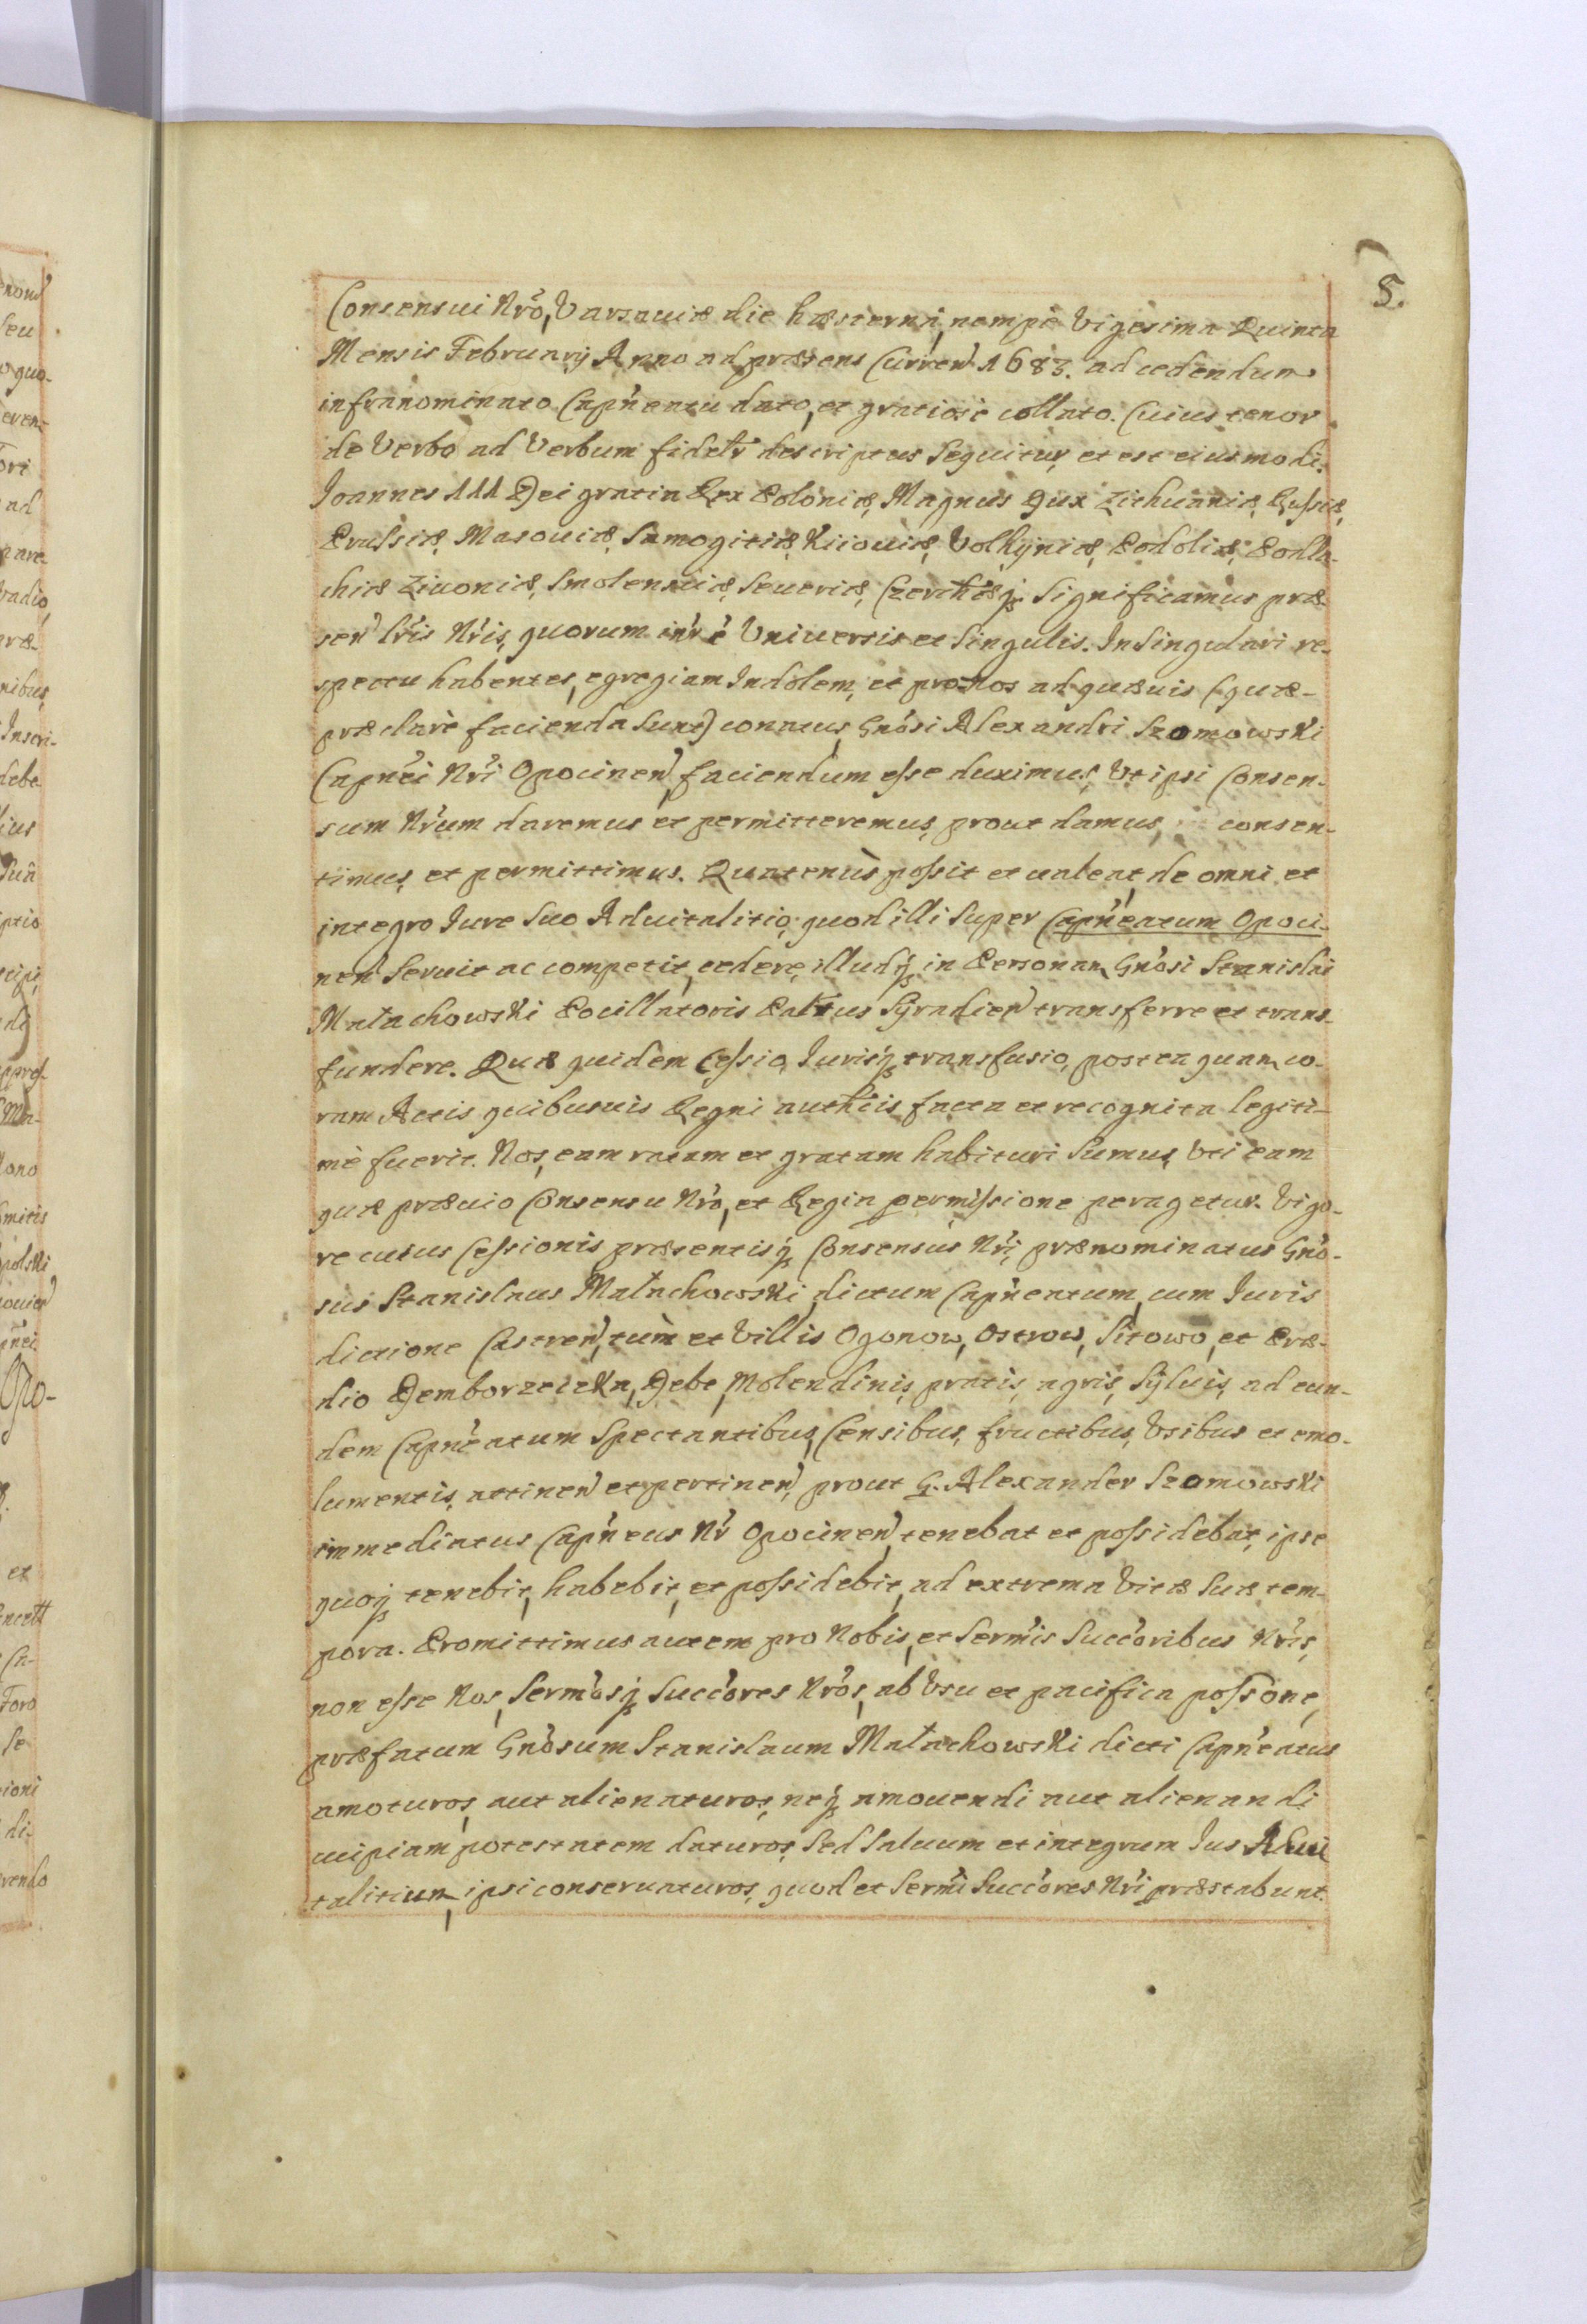 5.
Consensui Nr̃o, Varsauiæ die hæsterna, nempè Vigesima Quinta
Mensis Februarij Anno ad præsens Curren̄ 1683. ad cedendum
infranominato Capñeatu dato, et gratiosè collato. Cuius tenor
de Verbo ad Verbum fidelr̃ descriptus Sequitur, et est eiusmodi.
Joannes III Dei gratia Rex Poloniæ, Magnus Dux Lithuaniæ, Russiæ,
Prussiæ, Masouiæ, Samogitiæ, Kiiouiæ, Volhyniæ, Podoliæ, Podla-
chiæ Liuoniæ, Smolensciæ, Seueriæ, Czerthæq̃. Significamus præ-
sen̄ lr̃is Nr̃is, quorum int̃r ẽ Uniuersis et Singulis. In Singulari re-
spectu habentes, egregiam Indolem, et pronos ad quæuis (quæ-
præclarè facienda Sunt) conatus, Gñosi Alexandri Szamowski
Capñei Nr̃i Opocinen̄, faciendum esse duximus, Vt ipsi Consen-
sum Nr̃um daremus et permitteremus, prout damus, consen-
timus, et permittimus. Quatenùs possit et ualeat, de omni et
integro Jure Suo Aduitalitio, quod illi Super Capñeatum Opoci-
nen̄ Seruit ac competit, cedere, illudq̃ in Personam Gñosi Stanislai
Małachowski Pocillatoris Paltus Syradien̄ transferre et trans-
fundere. Quæ quidem Cessio, Jurisq̃ transfusio, posteaquam co-
ram Actis quibusuis Regni auth̃cis facta et recognita legiti-
mè fuerit. Nos, eam ratam et gratam habituri Sumus, Vti eam
quæ præuio Consensu Nr̃o, et Regia permissione peragetur. Vigo-
re cuius Cessionis præsentisq̃ Consensùs Nr̃i, prænominatus Gño-
sus Stanislaus Małachowski, dictum Capñeatum, cum Juris
dictione Castren̄, tùm et Villis Ogonow, Ostrow, Sitowo, et Præ-
dio Demborzeczka, Debe, Molendinis, pratis, agris, Syluis, ad eun-
dem Capñeatum Spectantibus, Censibus, fructibus, Vsibus et emo-
lumentis, attinen̄ et pertinen̄, prout G. Alexander Szamowski
immediatus Capñeus Nr̃ Opocinen̄, tenebat et possidebat, ipse
quoq̃ tenebit, habebit, et possidebit, ad extrema Vitæ Suæ tem-
pora. Promittimus autem pro Nobis, et Serm̃is Succ̃oribus Nr̃is,
non esse Nos, Serm̃osq̃ Succ̃ores Nr̃os, ab Vsu et pacifica poss̃one,
præfatum Gñosum Stanislaum Małachowski dicti Capñeatus
amoturos, aut alienaturos, neq̃ amouendi aut alienandi
cuipiam potestatem daturos, Sed Saluum et integrum Jus Adui
talitium, ipsi conseruaturos, quod et Serm̃i Succ̃ores Nr̃i præstabunt.